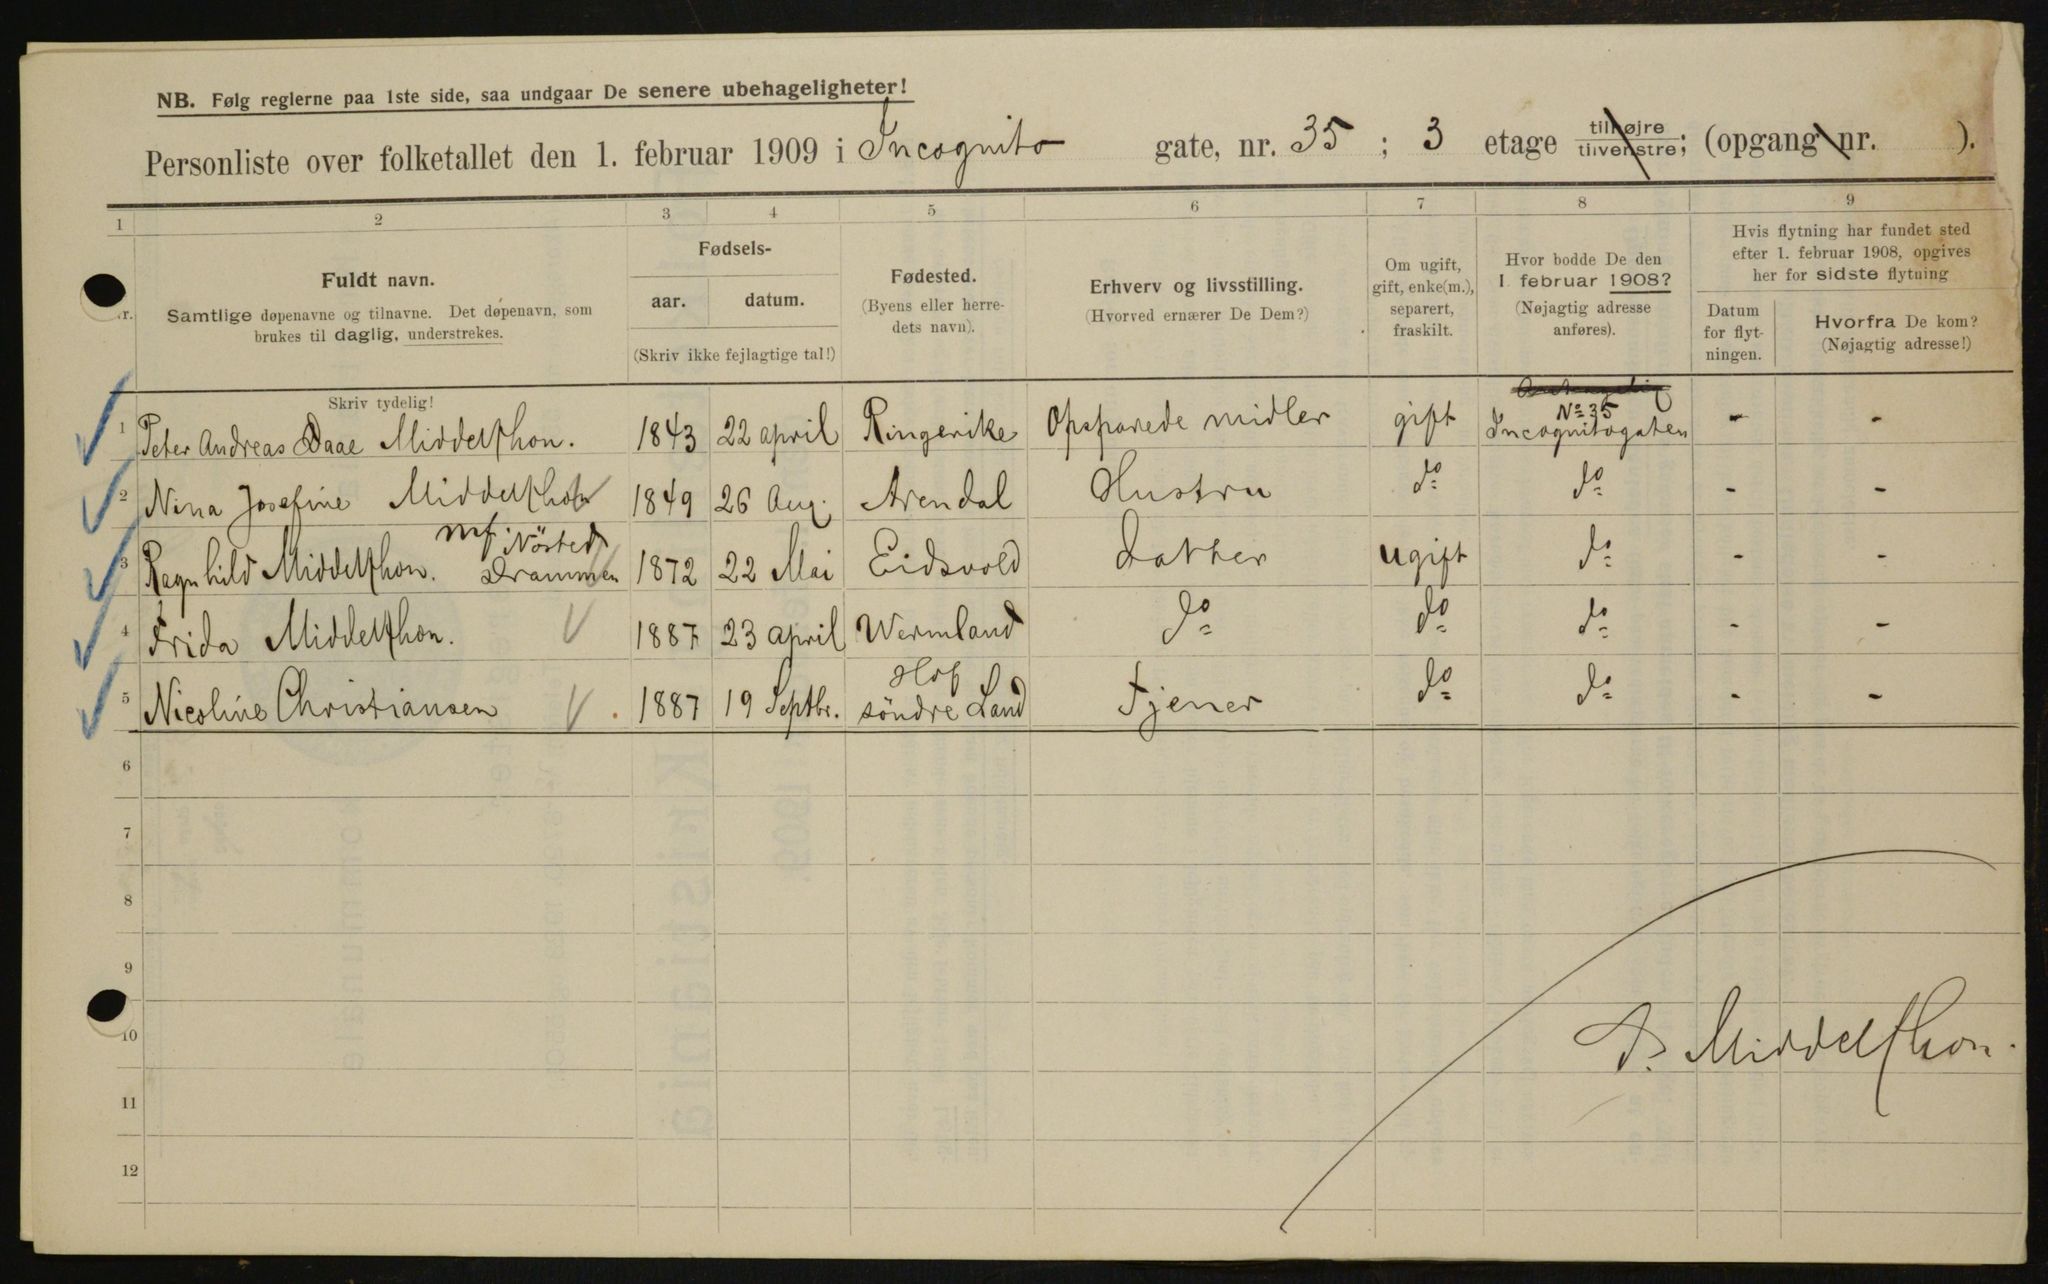 NB. Følg reglerne paa 1ste side, saa undgaar De senere ubehageligheter!
Personliste over folketallet den 1. februar 1909 i Incognito gate, nr. 35 ; 3 etage tilhøjre tilvenstre; (opgang nr. ).
1 2 3 4 5 6 7 8 9
Fuldt navn.
Samtlige døpenavne og tilnavne. Det døpenavn, som
brukes til daglig, understrekes.
Skriv tydelig!
Fødsels-
aar. datum.
(Skriv ikke fejlagtige tal!)
Fødested.
(Byens eller herre-
dets navn).
Erhverv og livsstilling.
(Hvorved ernærer De Dem?)
Om ugift,
gift, enke(m.),
separert,
fraskilt.
Hvor bodde De den
1. februar 1908?
(Nøjagtig adresse
anføres).
Hvis flytning har fundet sted
efter 1. februar 1908, opgives
her for sidste flytning
Datum
for flyt-
ningen.
Hvorfra De kom?
(Nøjagtig adresse!)
1 Peter Andreas Daae Middelthon. 1843 22 april Ringerike Opsparede midler gift No 35 Incognitogaten - -
2 Nina Josefine Middelthon 1849 26 Aug. Arendal Hustru do do - -
3 Ragnhild Middelthon. mf. Nösted Drammen 1872 22 Mai Eidsvold Datter ugift do - -
4 Frida Middelthon. 1887 23 april Wermland do do do - -
5 Nicoline Christiansen 1887 19 Septbr. Hof söndre Land Tjener do do - -
6
7
8
9
10
11
12
P. Middelthon.